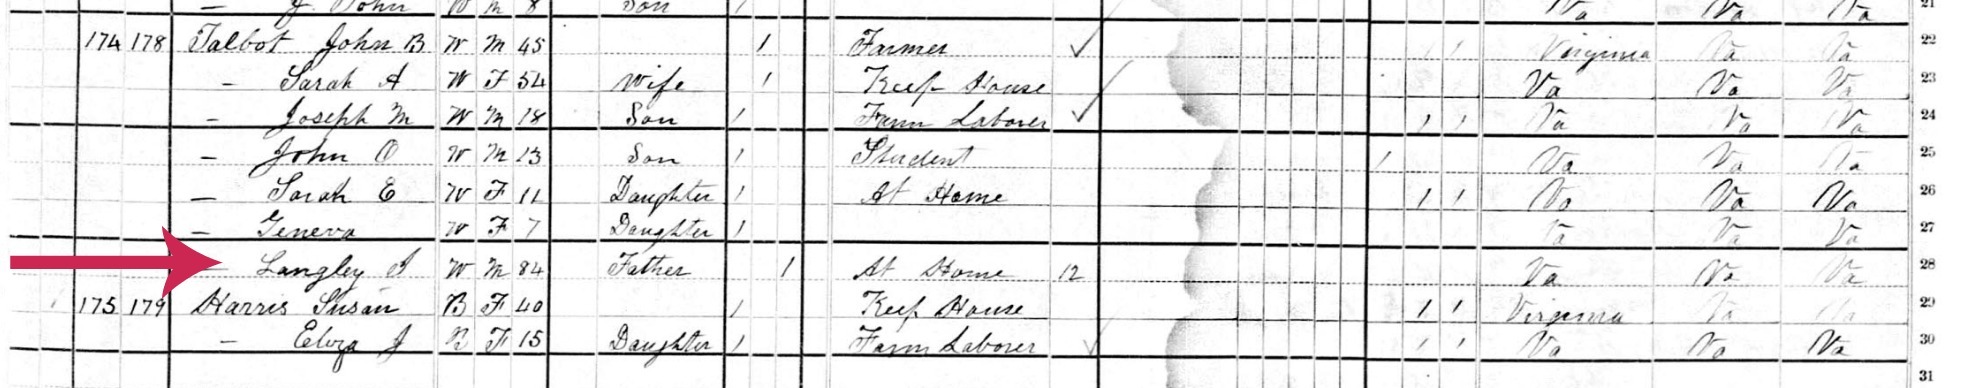 — J. John W M 8 Son 1 Va Va Va 21
174 178 Talbot John B W M 45 1 Farmer ✓ 1 1 Virginia Va Va 22
— Sarah A W F 54 Wife 1 Keep House Va Va Va 23
— Joseph M W M 18 Son 1 Farm Laborer ✓ 1 1 Va Va Va 24
— John O W M 13 Son 1 Student 1 Va Va Va 25
— Sarah E W F 11 Daughter 1 At Home 1 1 Va Va Va 26
— Geneva W F 7 Daughter 1 Va Va Va 27
— Langley J W M 84 Father 1 At Home 12 Va Va Va 28
175 179 Harris Susan B F 40 1 Keep House 1 1 Virginia Va Va 29
— Eliza J B F 15 Daughter 1 Farm Laborer ✓ 1 1 Va Va Va 30
31